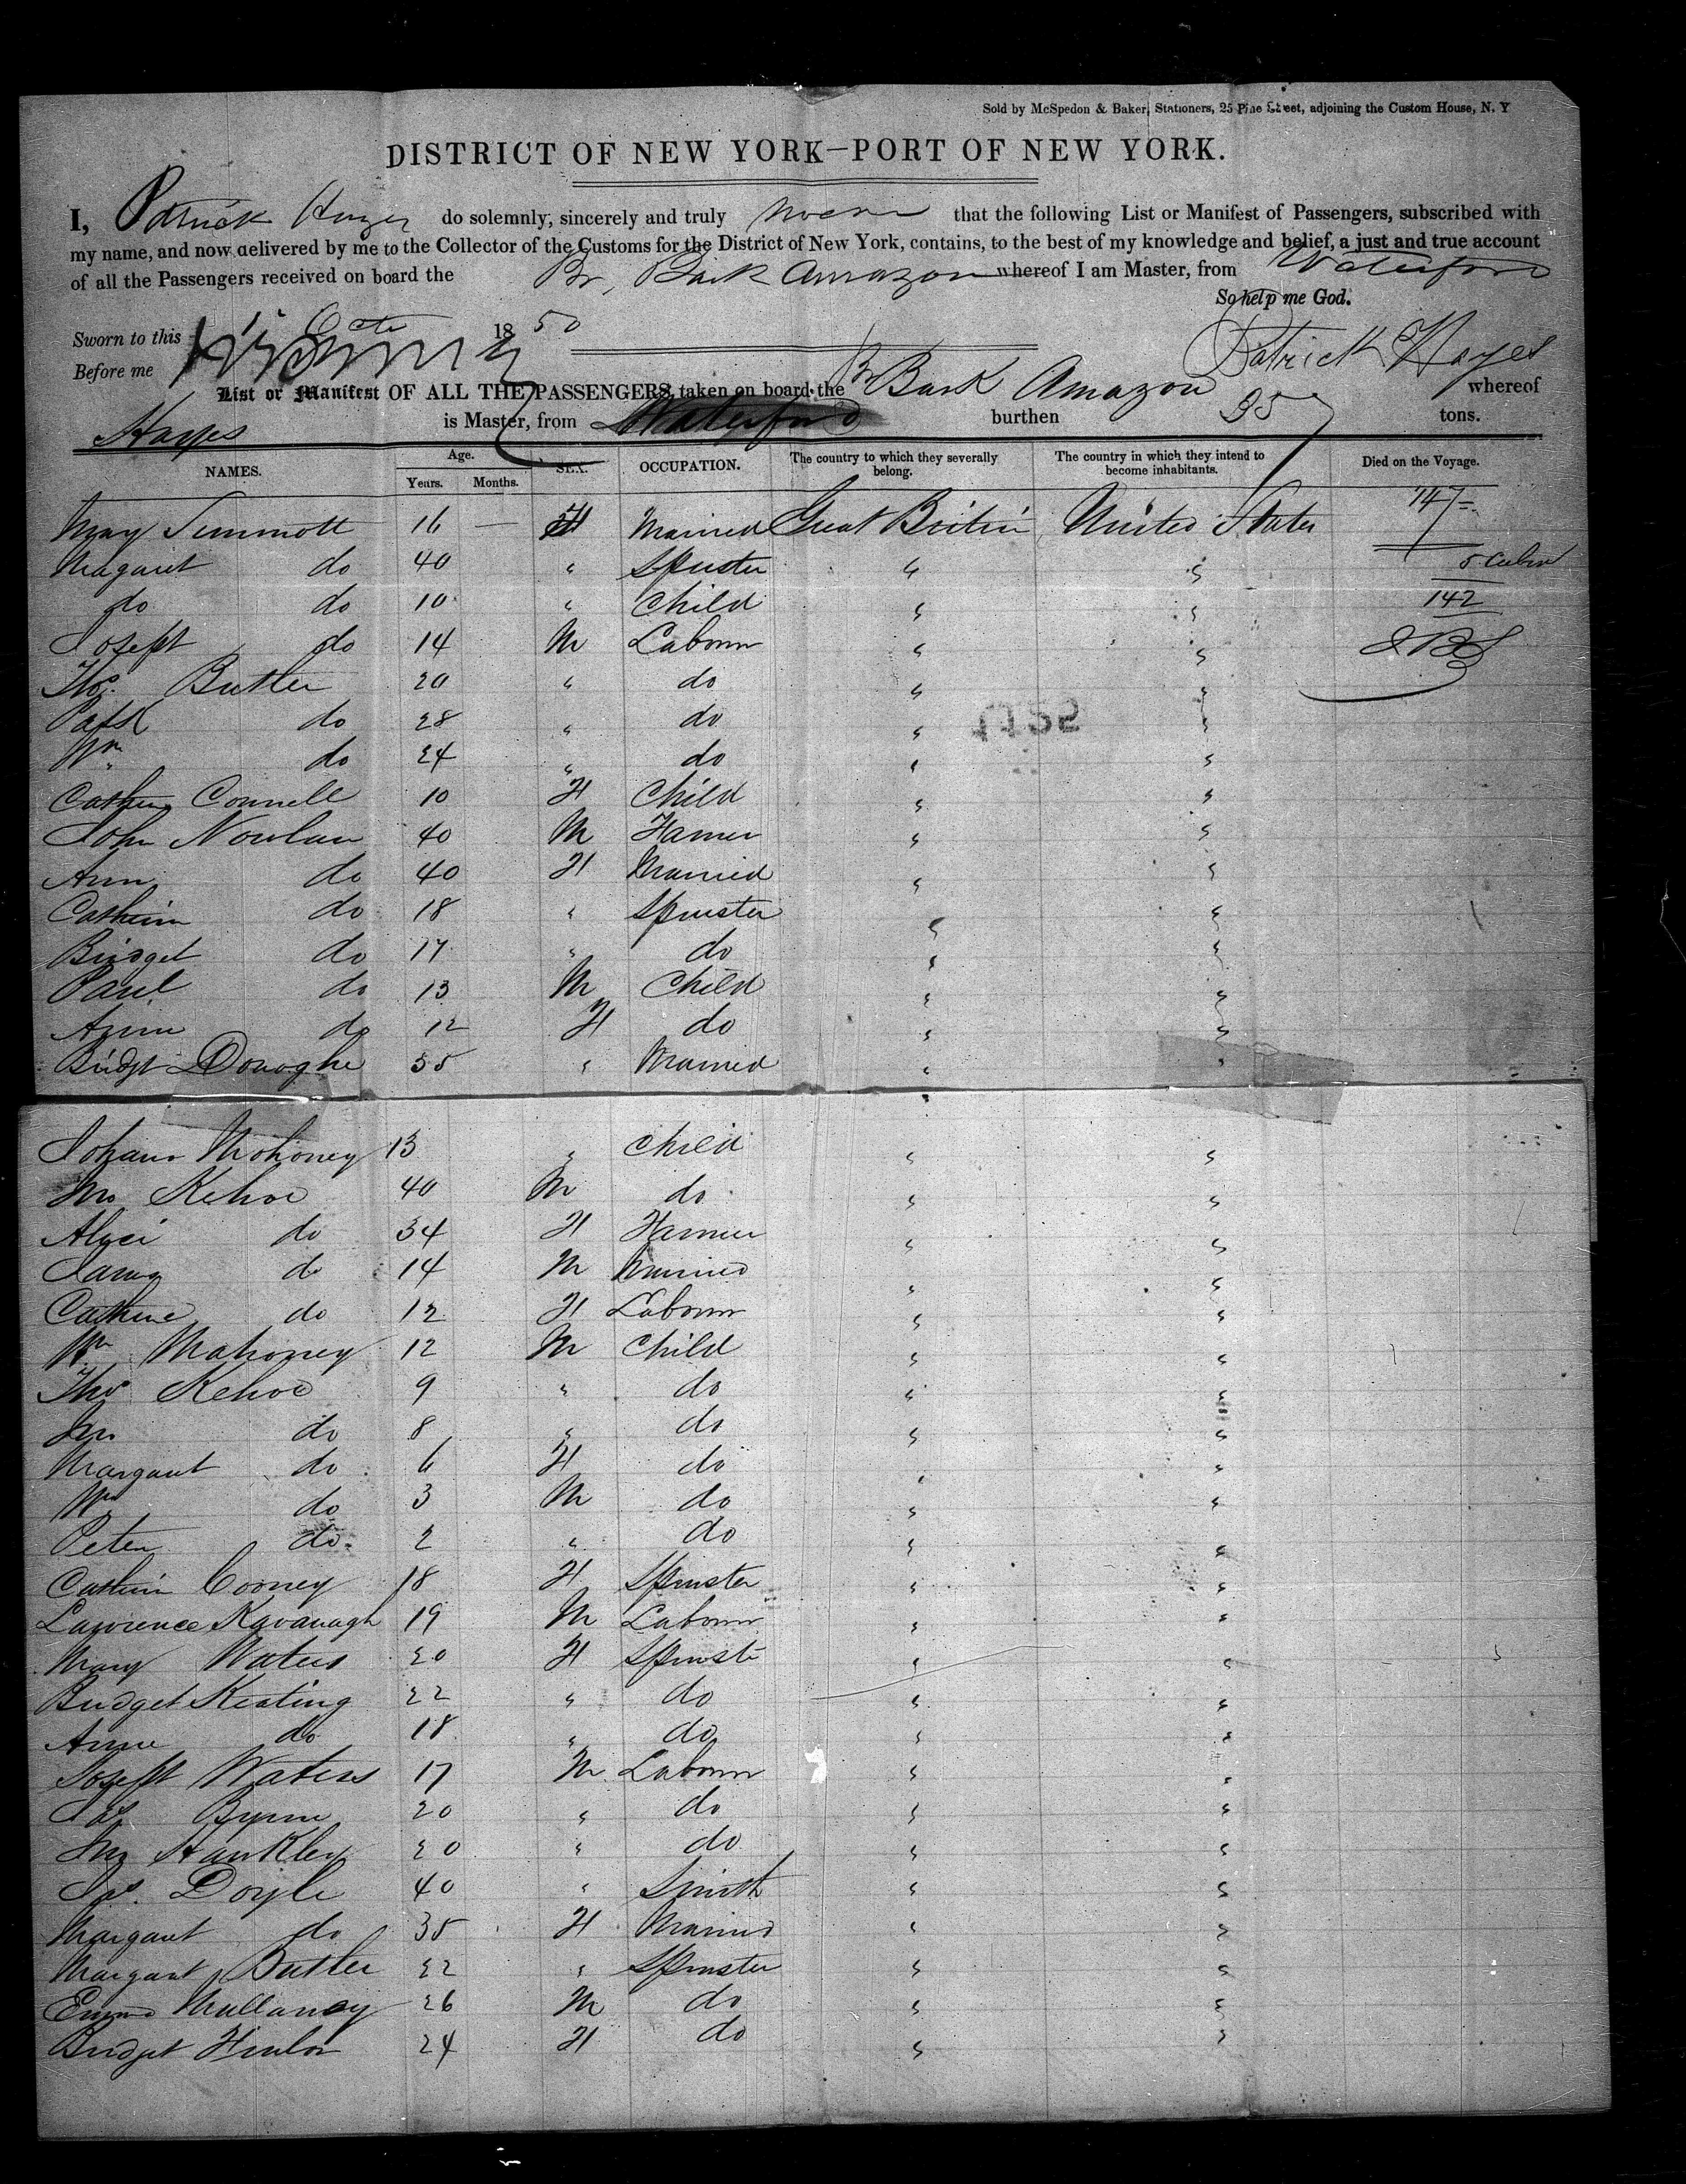 Sold by McSpedon & Baker, Stationers, 25 Pine Street, adjoining the Custom House, N. Y
DISTRICT OF NEW YORK—PORT OF NEW YORK.
I, Patrick Hayes do solemnly, sincerely and truly swear that the following List or Manifest of Passengers, subscribed with
my name, and now delivered by me to the Collector of the Customs for the District of New York, contains, to the best of my knowledge and belief, a just and true account
of all the Passengers received on board the Br, Bark Amazon whereof I am Master, from Waterford
So help me God.
Sworn to this 1850
Before me Patrick Hayes
List or Manifest OF ALL THE PASSENGERS, taken on board the Br Bark Amazon whereof
Hayes is Master, from Waterford burthen tons.
NAMES. Age. Years. Months. SEX. OCCUPATION. The country to which they severally belong. The country in which they intend to become inhabitants. Died on the Voyage.
Mary Sinnmott 16 — F Married Great Britin United States 147
Magaret do 40 " Spinster " " 5
do do 10 " Child " " 142
Joseph do 14 M Labourr " "
Thos. Butler 20 " do " "
Patk do 28 " do " "
Wm do 24 " do " "
1125
Connell 10 F Child " "
John Nowlan 40 M Farmer " "
Ann do 40 F Married " "
Catherin do 18 " Spinster " "
Bridget do 17 " do " "
Paul do 13 M Child " "
Anne do 12 F do " "
Bridgt Donoghe 35 " Married " "
Johana Mohoney 13 " Child " "
Jno Kehoe 40 M do " "
Alyci do 34 F Farmer " "
James do 14 M Married " "
Catherine do 12 F Labourr " "
Wm Mahoney 12 M Child " "
Thos Kehoe 9 " do " "
Jno do 8 " do " "
Margaret do 6 F do " "
Wm do 3 M do " "
Peter do 2 " do " "
Catherin Cooney 18 F Spinster " "
Lawrence Kavanagh 19 M Labourr " "
Mary Waters 20 F Spinste " "
Bridget Keating 22 " do " "
Anne do 18 " do " "
Joseph Waters 17 M Labourr " "
Jas Byrne 20 " do " "
Jno 20 " do " "
Jas. Doyle 40 " Smith " "
Margaret do 35 F Married " "
Margart Butler 22 " Spinster " "
Mullaney 26 M do " "
Bridget 24 F do " "